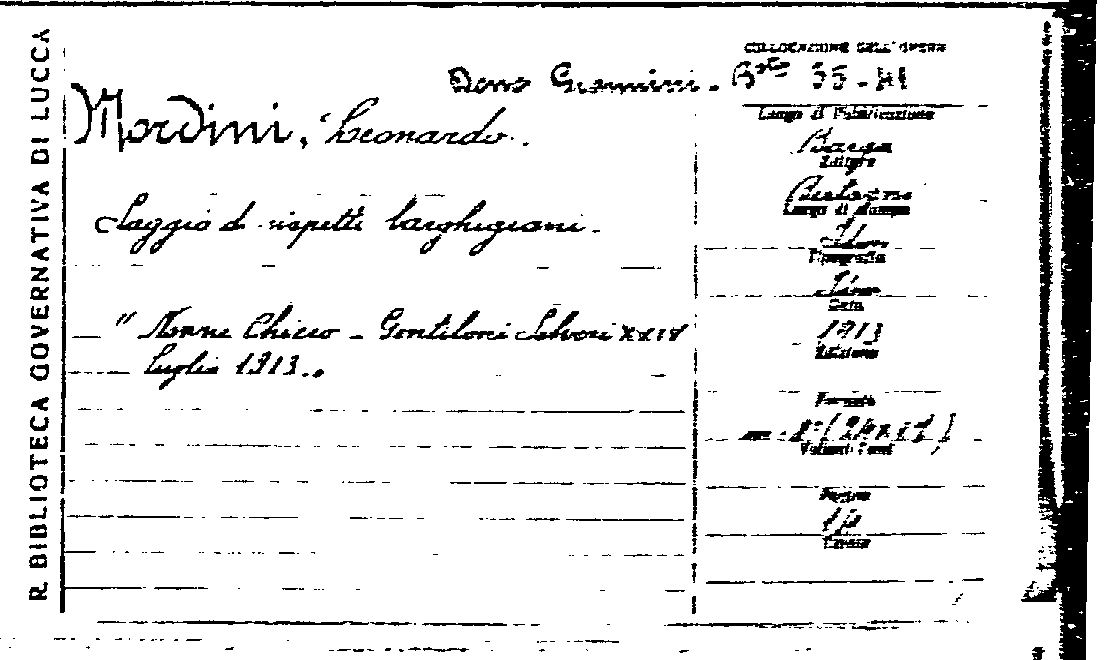 R. BIBLIOTECA GOVERNATIVA DI LUCCA
COLLOCAZIONE DELL'OPERA
Dono Giannini. Bta 55-
Mordini, Leonardo.
Saggio di rispetti barghigiani.
" Nozze Chicco - Gentiloni Silverj XXIV
luglio 1913.
Luogo di Pubblicazione
Barga
Editore
Luogo di stampa
Idem
Tipografia
Idem
Data
1913
Edizione
Formato
Volumi-Tomi
Pagine